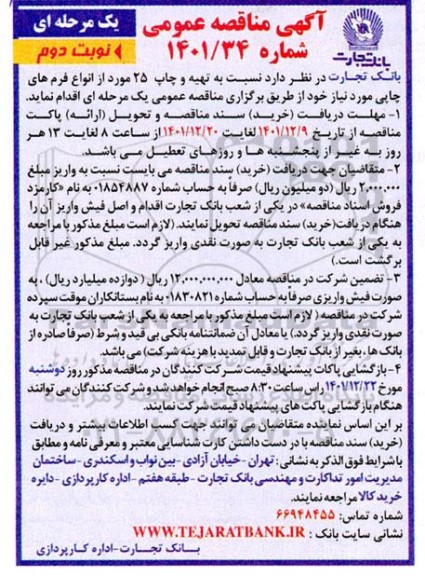 بانک تجارت
آگهی مناقصه عمومی
شماره ۱۴۰۱/۳۴
یک مرحله ای
نوبت دوم
بانک تجارت در نظر دارد نسبت به تهیه و چاپ ۲۵ مورد از انواع فرم های
چاپی مورد نیاز خود از طریق برگزاری مناقصه عمومی یک مرحله ای اقدام نماید.
۱- مهلت دریافت (خرید) سند مناقصه و تحویل (ارائه) پاکت
مناقصه از تاریخ ۱۴۰۱/۱۲/۹ لغایت ۱۴۰۱/۱۲/۲۰ از ساعت ۸ لغایت ۱۳ هر
روز به غیر از پنجشنبه ها و روزهای تعطیل می باشد.
۲- متقاضیان جهت دریافت (خرید) سند مناقصه می بایست نسبت به واریز مبلغ
۲,۰۰۰,۰۰۰ ریال (دو میلیون ریال) صرفاً به حساب شماره ۰۱۸۵۴۸۸۷ به نام «کارمزد
فروش اسناد مناقصه» در یکی از شعب بانک تجارت اقدام و اصل فیش واریز آن را
هنگام دریافت(خرید) سند مناقصه تحویل نمایند. (لازم است مبلغ مذکور با مراجعه
به یکی از شعب بانک تجارت به صورت نقدی واریز گردد. مبلغ مذکور غیر قابل
برگشت است.)
۳- تضمین شرکت در مناقصه معادل ۱۲,۰۰۰,۰۰۰,۰۰۰ ریال (دوازده میلیارد ریال)، به
صورت فیش واریزی صرفاً به حساب شماره ۰۱۸۳۰۸۲۱ به نام بستانکاران موقت سپرده
شرکت در مناقصه (لازم است مبلغ مذکور با مراجعه به یکی از شعب بانک تجارت به
صورت نقدی واریز گردد.) یا معادل آن ضمانتنامه بانکی بی قید و شرط (صرفا صادره از
بانک ها، بغیر از بانک تجارت و قابل تمدید با هزینه شرکت) می باشد.
۴- بازگشایی پاکات پیشنهاد قیمت شرکت کنندگان در مناقصه مذکور روز دوشنبه
مورخ ۱۴۰۱/۱۲/۲۲ راس ساعت ۸:۳۰ صبح انجام خواهد شد و شرکت کنندگان می توانند
هنگام بازگشایی پاکت های پیشنهاد قیمت شرکت نمایند.
بر این اساس نماینده متقاضیان می توانند جهت کسب اطلاعات بیشتر و دریافت
(خرید) سند مناقصه با در دست داشتن کارت شناسایی معتبر و معرفی نامه و مطابق
با شرایط فوق الذکر به نشانی: تهران - خیابان آزادی - بین نواب و اسکندری - ساختمان
مدیریت امور تدارکات و مهندسی بانک تجارت - طبقه هفتم - اداره کارپردازی - دایره
خرید کالا مراجعه نمایند.
شماره تماس: ۶۶۹۴۸۴۵۵
نشانی سایت بانک : WWW.TEJARATBANK.IR
بانک تجارت-اداره کارپردازی